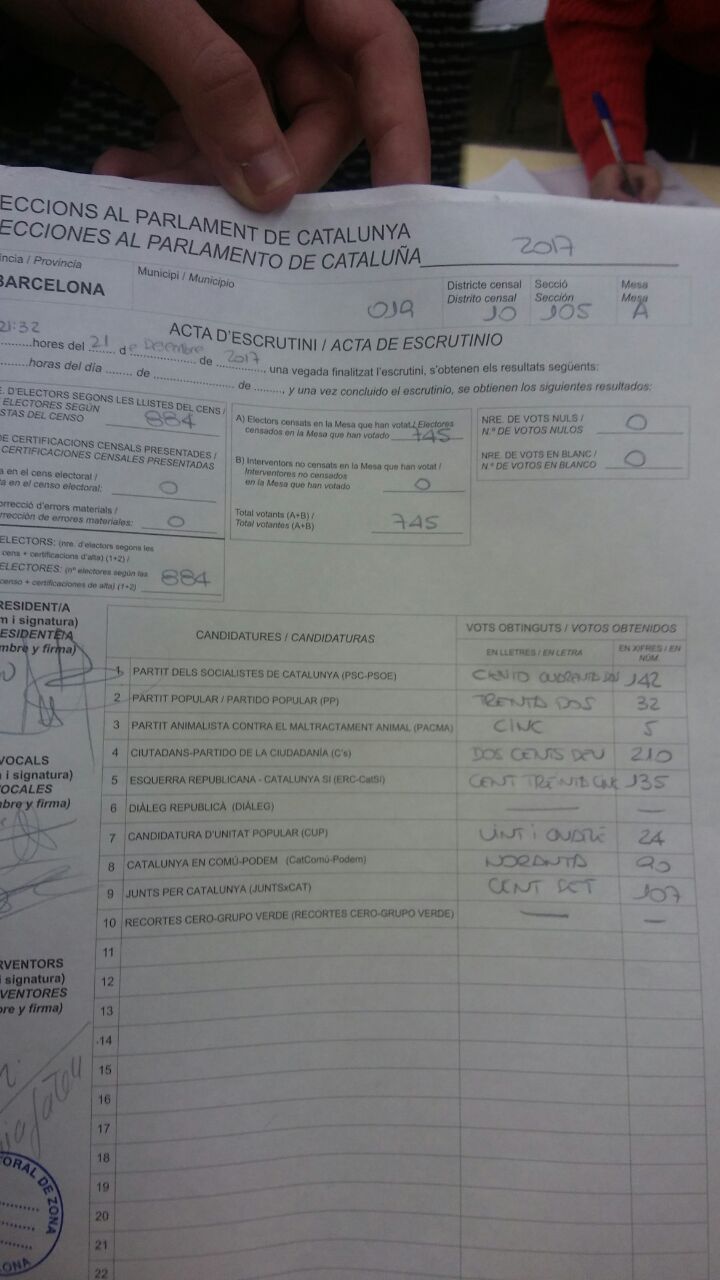 ECCIONS AL PARLAMENT DE CATALUNYA
ECCIONES AL PARLAMENTO DE CATALUÑA 2017
ncia / Provincia
BARCELONA
Municipi / Municipio
019
Districte censal
Distrito censal
10
Secció
Sección
105
Mesa
Mesa
A
ACTA D'ESCRUTINI / ACTA DE ESCRUTINIO
21:32 hores del 21 de Desembre de 2017, una vegada finalitzat l'escrutini, s'obtenen els resultats següents:
horas del día ........ de ........ de ........, y una vez concluido el escrutinio, se obtienen los siguientes resultados:
E. D'ELECTORS SEGONS LES LLISTES DEL CENS /
ELECTORES SEGÚN
STAS DEL CENSO 884
DE CERTIFICACIONS CENSALS PRESENTADES /
CERTIFICACIONES CENSALES PRESENTADAS
a en el cens electoral /
a en el censo electoral: 0
orrecció d'errors materials /
rrección de errores materiales: 0
ELECTORS: (nre. d'electors segons les
cens + certificacions d'alta) (1+2) /
ELECTORES: (nº electores según las
censo + certificaciones de alta) (1+2) 884
A) Electors censats en la Mesa que han votat / Electores
censados en la Mesa que han votado 745
B) Interventors no censats en la Mesa que han votat /
Interventores no censados
en la Mesa que han votado 0
Total votants (A+B) /
Total votantes (A+B) 745
NRE. DE VOTS NULS /
N.º DE VOTOS NULOS 0
NRE. DE VOTS EN BLANC /
N.º DE VOTOS EN BLANCO 0
RESIDENT/A
m i signatura)
RESIDENTE/A
mbre y firma)
VOCALS
i signatura)
VOCALES
bre y firma)
RVENTORS
i signatura)
VENTORES
bre y firma)
CANDIDATURES / CANDIDATURAS
VOTS OBTINGUTS / VOTOS OBTENIDOS
EN LLETRES / EN LETRA
EN XIFRES / EN NÚM.
1 PARTIT DELS SOCIALISTES DE CATALUNYA (PSC-PSOE) 142
2 PARTIT POPULAR / PARTIDO POPULAR (PP) TRENTA DOS 32
3 PARTIT ANIMALISTA CONTRA EL MALTRACTAMENT ANIMAL (PACMA) CINC 5
4 CIUTADANS-PARTIDO DE LA CIUDADANÍA (C's) DOS CENTS DEU 210
5 ESQUERRA REPUBLICANA - CATALUNYA SÍ (ERC-CatSí) CENT TRENTA CINC 135
6 DIÀLEG REPUBLICÀ (DIÀLEG) — —
7 CANDIDATURA D'UNITAT POPULAR (CUP) VINT I QUATRE 24
8 CATALUNYA EN COMÚ-PODEM (CatComú-Podem) NORANTA 90
9 JUNTS PER CATALUNYA (JUNTSxCAT) CENT SET 107
10 RECORTES CERO-GRUPO VERDE (RECORTES CERO-GRUPO VERDE) — —
11
12
13
14
15
16
17
18
19
20
21
22
ORAL DE ZONA